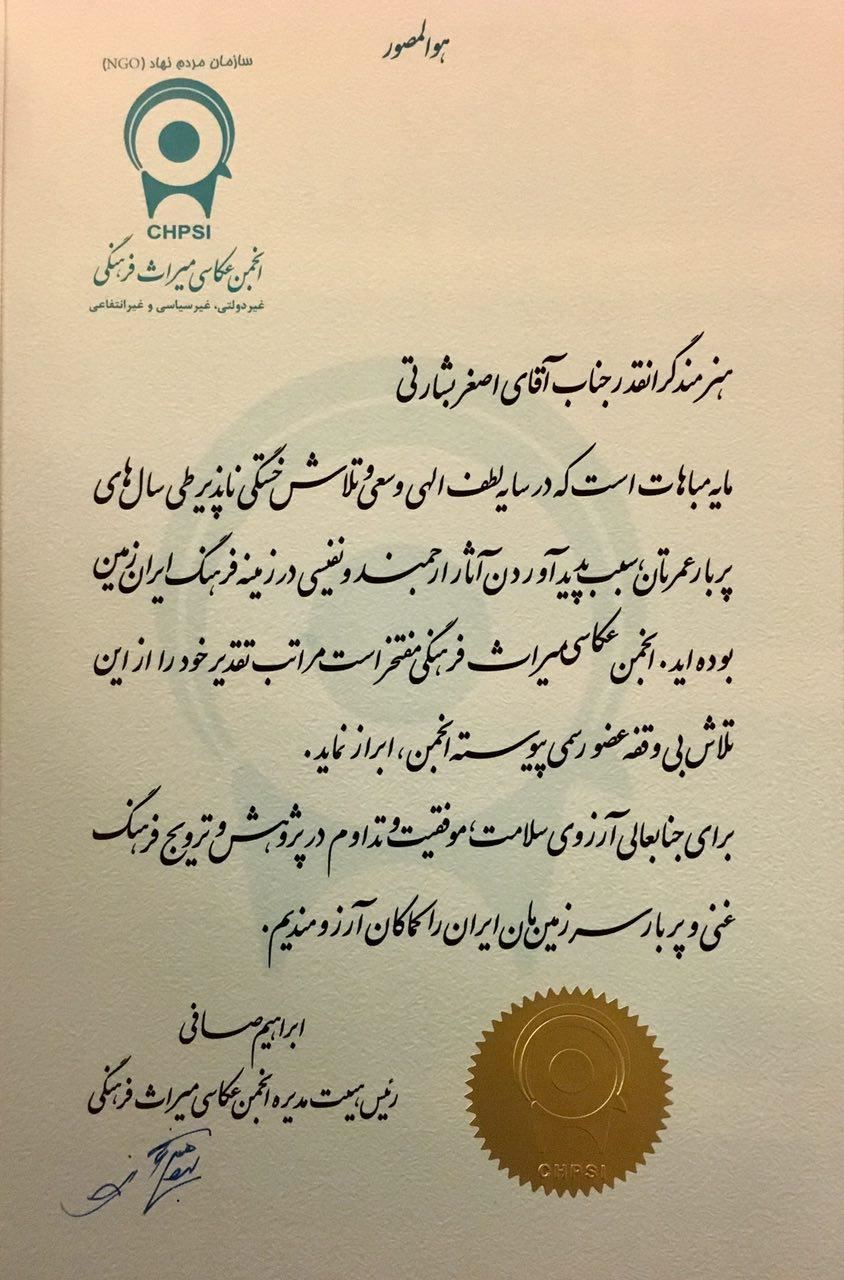 هوالمصور
سازمان مردم نهاد (NGO)
CHPSI
انجمن عکاسی میراث فرهنگی
غیردولتی، غیرسیاسی و غیرانتفاعی
هنرمند گرانقدر جناب آقای اصغر بشارتی
مایه مباهات است که در سایه لطف الهی و سعی و تلاش خستگی ناپذیر طی سال های
پربار عمرتان، سبب پدید آوردن آثار ارجمند و نفیسی در زمینه فرهنگ ایران زمین
بوده اید. انجمن عکاسی میراث فرهنگی مفتخر است مراتب تقدیر خود را از این
تلاش بی وقفه عضو رسمی پیوسته انجمن، ابراز نماید.
برای جنابعالی آرزوی سلامت، موفقیت و تداوم در پژوهش و ترویج فرهنگ
غنی و پربار سرزمین مان ایران را کماکان آرزومندیم.
ابراهیم صافی
رئیس هیئت مدیره انجمن عکاسی میراث فرهنگی
CHPSI